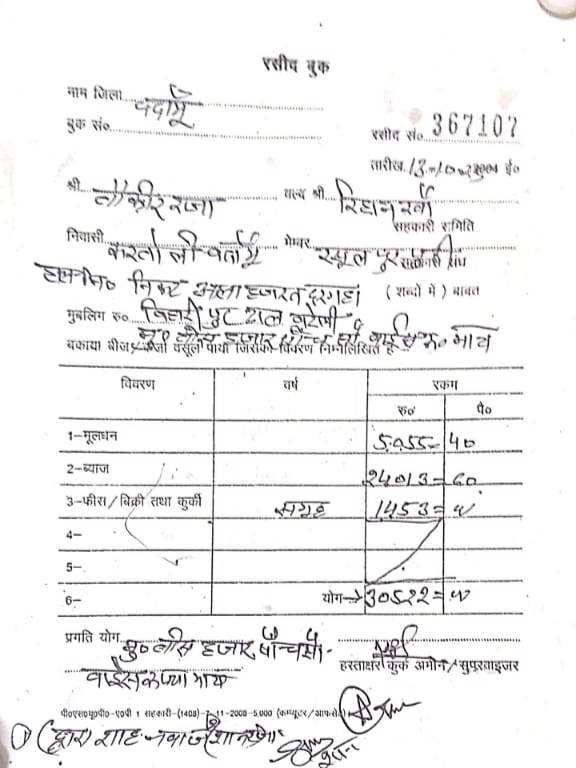 रसीद बुक
नाम जिला बदायूँ
बुक सं०
रसीद सं० 367107
तारीख 13-10-2009 ई०
श्री तौकीर रजा वल्द श्री रिहान खाँ
सहकारी समिति
निवासी करतोली बदायूँ मेम्बर रसूल पुर सहकारी संघ
हाल नि० निकट आला हजरत दरगाह (शब्दों में) बावत
मुबलिग रु० बिहारी पुर बरेली
मु० तीस हजार पाँच सौ बाईस रु० मात्र
बकाया बीज/कर्जा वसूल पाया जिसका विवरण निम्नलिखित है
विवरण वर्ष रकम
रु० पै०
1-मूलधन 5055=40
2-ब्याज 24013=60
3-फीस/बिक्री तथा कुर्की संग्रह 1453=
4-
5-
6- योग→ 30522=
प्रगति योग मु० तीस हजार पाँच सौ
हस्ताक्षर कुर्क अमीन/सुपरवाइजर
बाईस रुपया मात्र
पी०एस०यू०पी०-ए०पी 1 सहकारी-(1408)-7-11-2008-5,000 (कम्प्यूटर/आफसेट)
① (द्वारा शाह नवाज